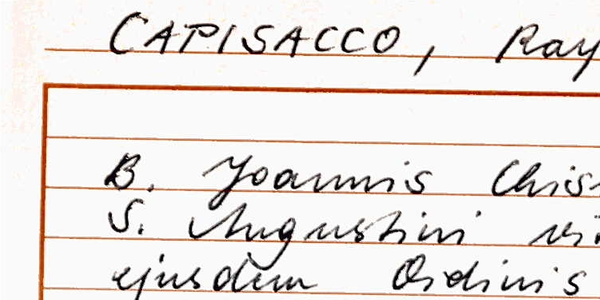 CAPISACCO, Ray
B. Joannis Chis
S. Augustini
ejusdem Ordinis